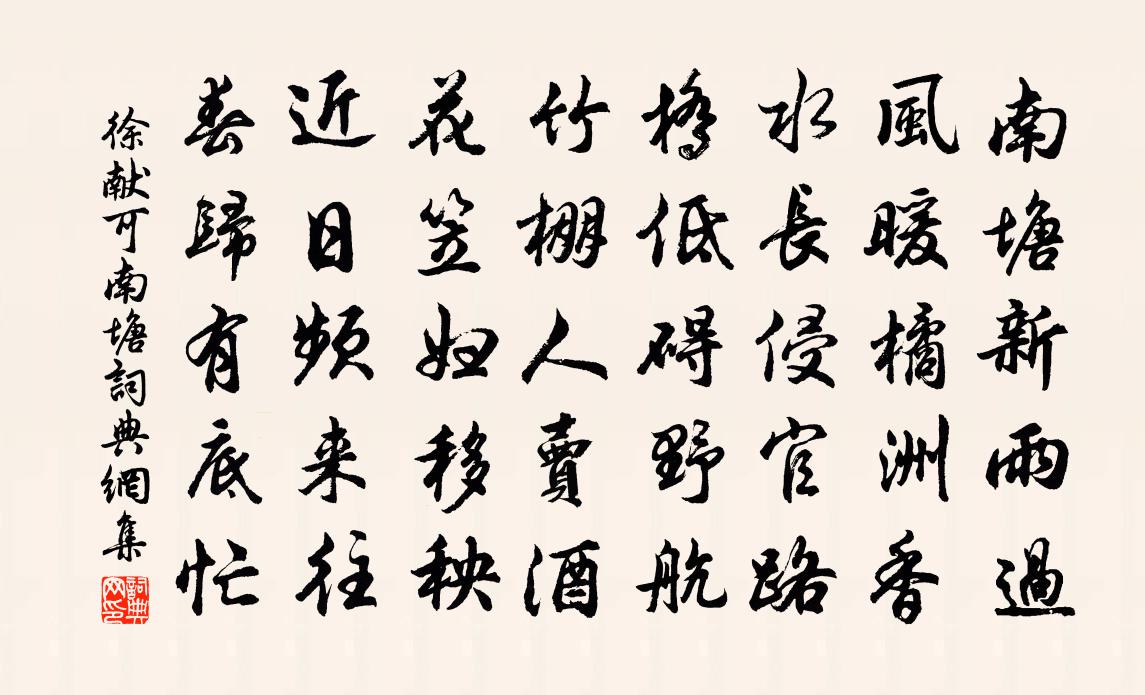 南塘新雨過
風暖橘洲香
水長侵官路
橋低碍野航
竹棚人賣酒
花笠妇移秧
近日頻来往
春歸有底忙
徐献可南塘詞典網集
詞典网印